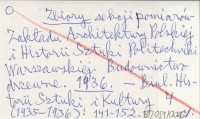 Zbiory sekcji pomiarów
Zakładu Architektury Polskiej
i Historii Sztuki Politechniki
Warszawskiej. Budownictwo
drzewne. 1936. — Biul. His-
torii Sztuki i Kultury 4
(1935-1936): 141-152.